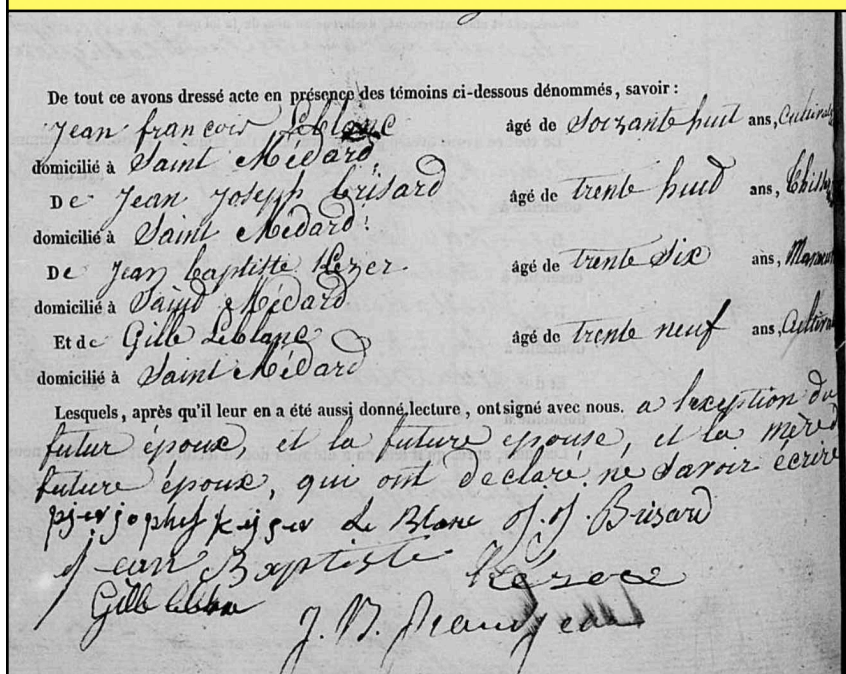 De tout ce avons dressé acte en présence des témoins ci-dessous dénommés, savoir :
Jean francois Leblanc âgé de Soixante huit ans, Cultivat
domicilié à Saint Médard
De Jean Joseph Brisard âgé de trente huit ans,
domicilié à Saint Médard
De Jean baptiste Kezer âgé de trente Six ans,
domicilié à Saint Médard
Et de Gille Leblanc âgé de trente neuf ans, Cultiva
domicilié à Saint Médard
Lesquels, après qu'il leur en a été aussi donné lecture, ont signé avec nous. a lexception du
futur époux, et la future epouse, et la mère d
future époux, qui ont declaré ne Savoir écrire
Le Blanc J. J. Brisard
Jean Baptiste
Gille
J. B.